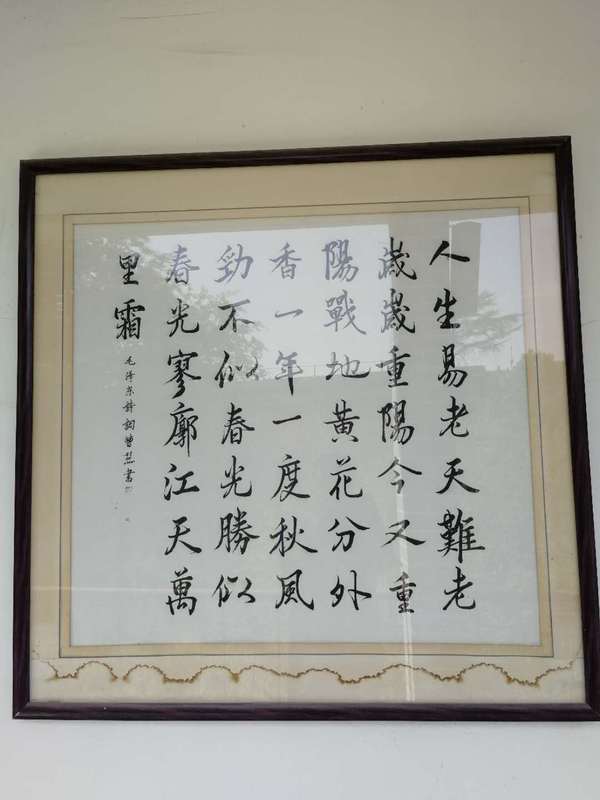 人生易老天難老
歲歲重陽今又重
陽戰地黃花分外
香一年一度秋風
勁不似春光勝似
春光寥廓江天萬
里霜
毛澤東詩詞 書